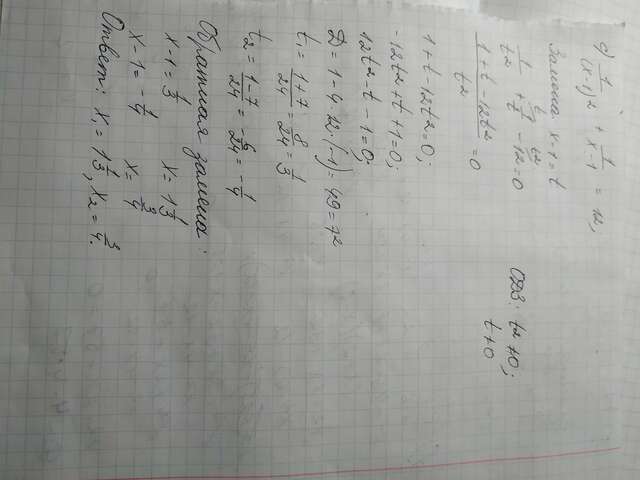 c) 1/(x-1)² + 1/(x-1) = 12;
Замена x-1=t
1/t² + 1/t - 12=0
ОДЗ: t²≠0;
t≠0
(1+t-12t²)/t² =0
1+t-12t²=0;
-12t²+t+1=0;
12t²-t-1=0;
D=1-4·12·(-1)=49=7²
t₁= (1+7)/24 = 8/24 = 1/3
t₂= (1-7)/24 = -6/24 = -1/4
Обратная замена:
x-1=1/3 x=1 1/3
x-1=-1/4 x=3/4
Ответ: x₁=1 1/3, x₂=3/4.